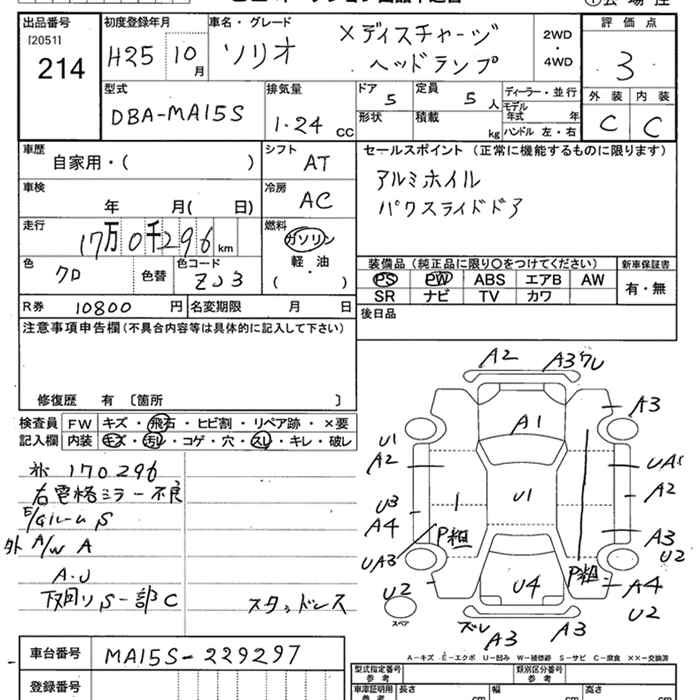 出品番号 初度登録年月 車名・グレード 評価点
[2051]
214
H25 10月 ソリオ ×ディスチャージ 2WD
ヘッドランプ ・4WD 3
外装 内装
C C
型式 排気量 ドア 5 定員 5人 ディーラー・並行
DBA-MA15S 1.24 CC 形状 積載 kg モデル年式 年
ハンドル 左・右
車歴 シフト セールスポイント (正常に機能するものに限ります)
自家用・( ) AT アルミホイル
車検 冷房
年 月( 日) AC パワスライドドア
走行 燃料
17万0千296km ガソリン
軽・油
( )
色 色替 色コード
クロ ZJ3
装備品 (純正品に限り○をつけてください) 新車保証書
PS PW ABS エアB AW 有・無
SR ナビ TV カワ
R券 10800円 名変期限 月 日 後日品
注意事項申告欄(不具合内容等は具体的に記入して下さい)
修復歴 有 〔箇所 〕
検査員 FW キズ・飛石・ヒビ割・リペア跡・×要
記入欄 内装 キズ・汚レ・コゲ・穴・スレ・キレ・破レ
170296
右電格ミラー不良
E/Gルーム S
外 A/W A
A.U
下回り S 一部C
スタッドレス
A2 A3ワレ
A1 A3
U1 UA1
A2 U1 A2
U3
A4 P組 A3
UA3 U2
U2 U4 P組 A4
U2
スペア
ズレ A3 A3
車台番号 MA15S-229297
A-キズ E-エクボ U-凹み W-補修跡 S-サビ C-腐食 ××-交換済
登録番号
型式指定番号 参考 類別区分番号 参考
車庫証明用 参考 長さ cm 幅 cm 高さ cm